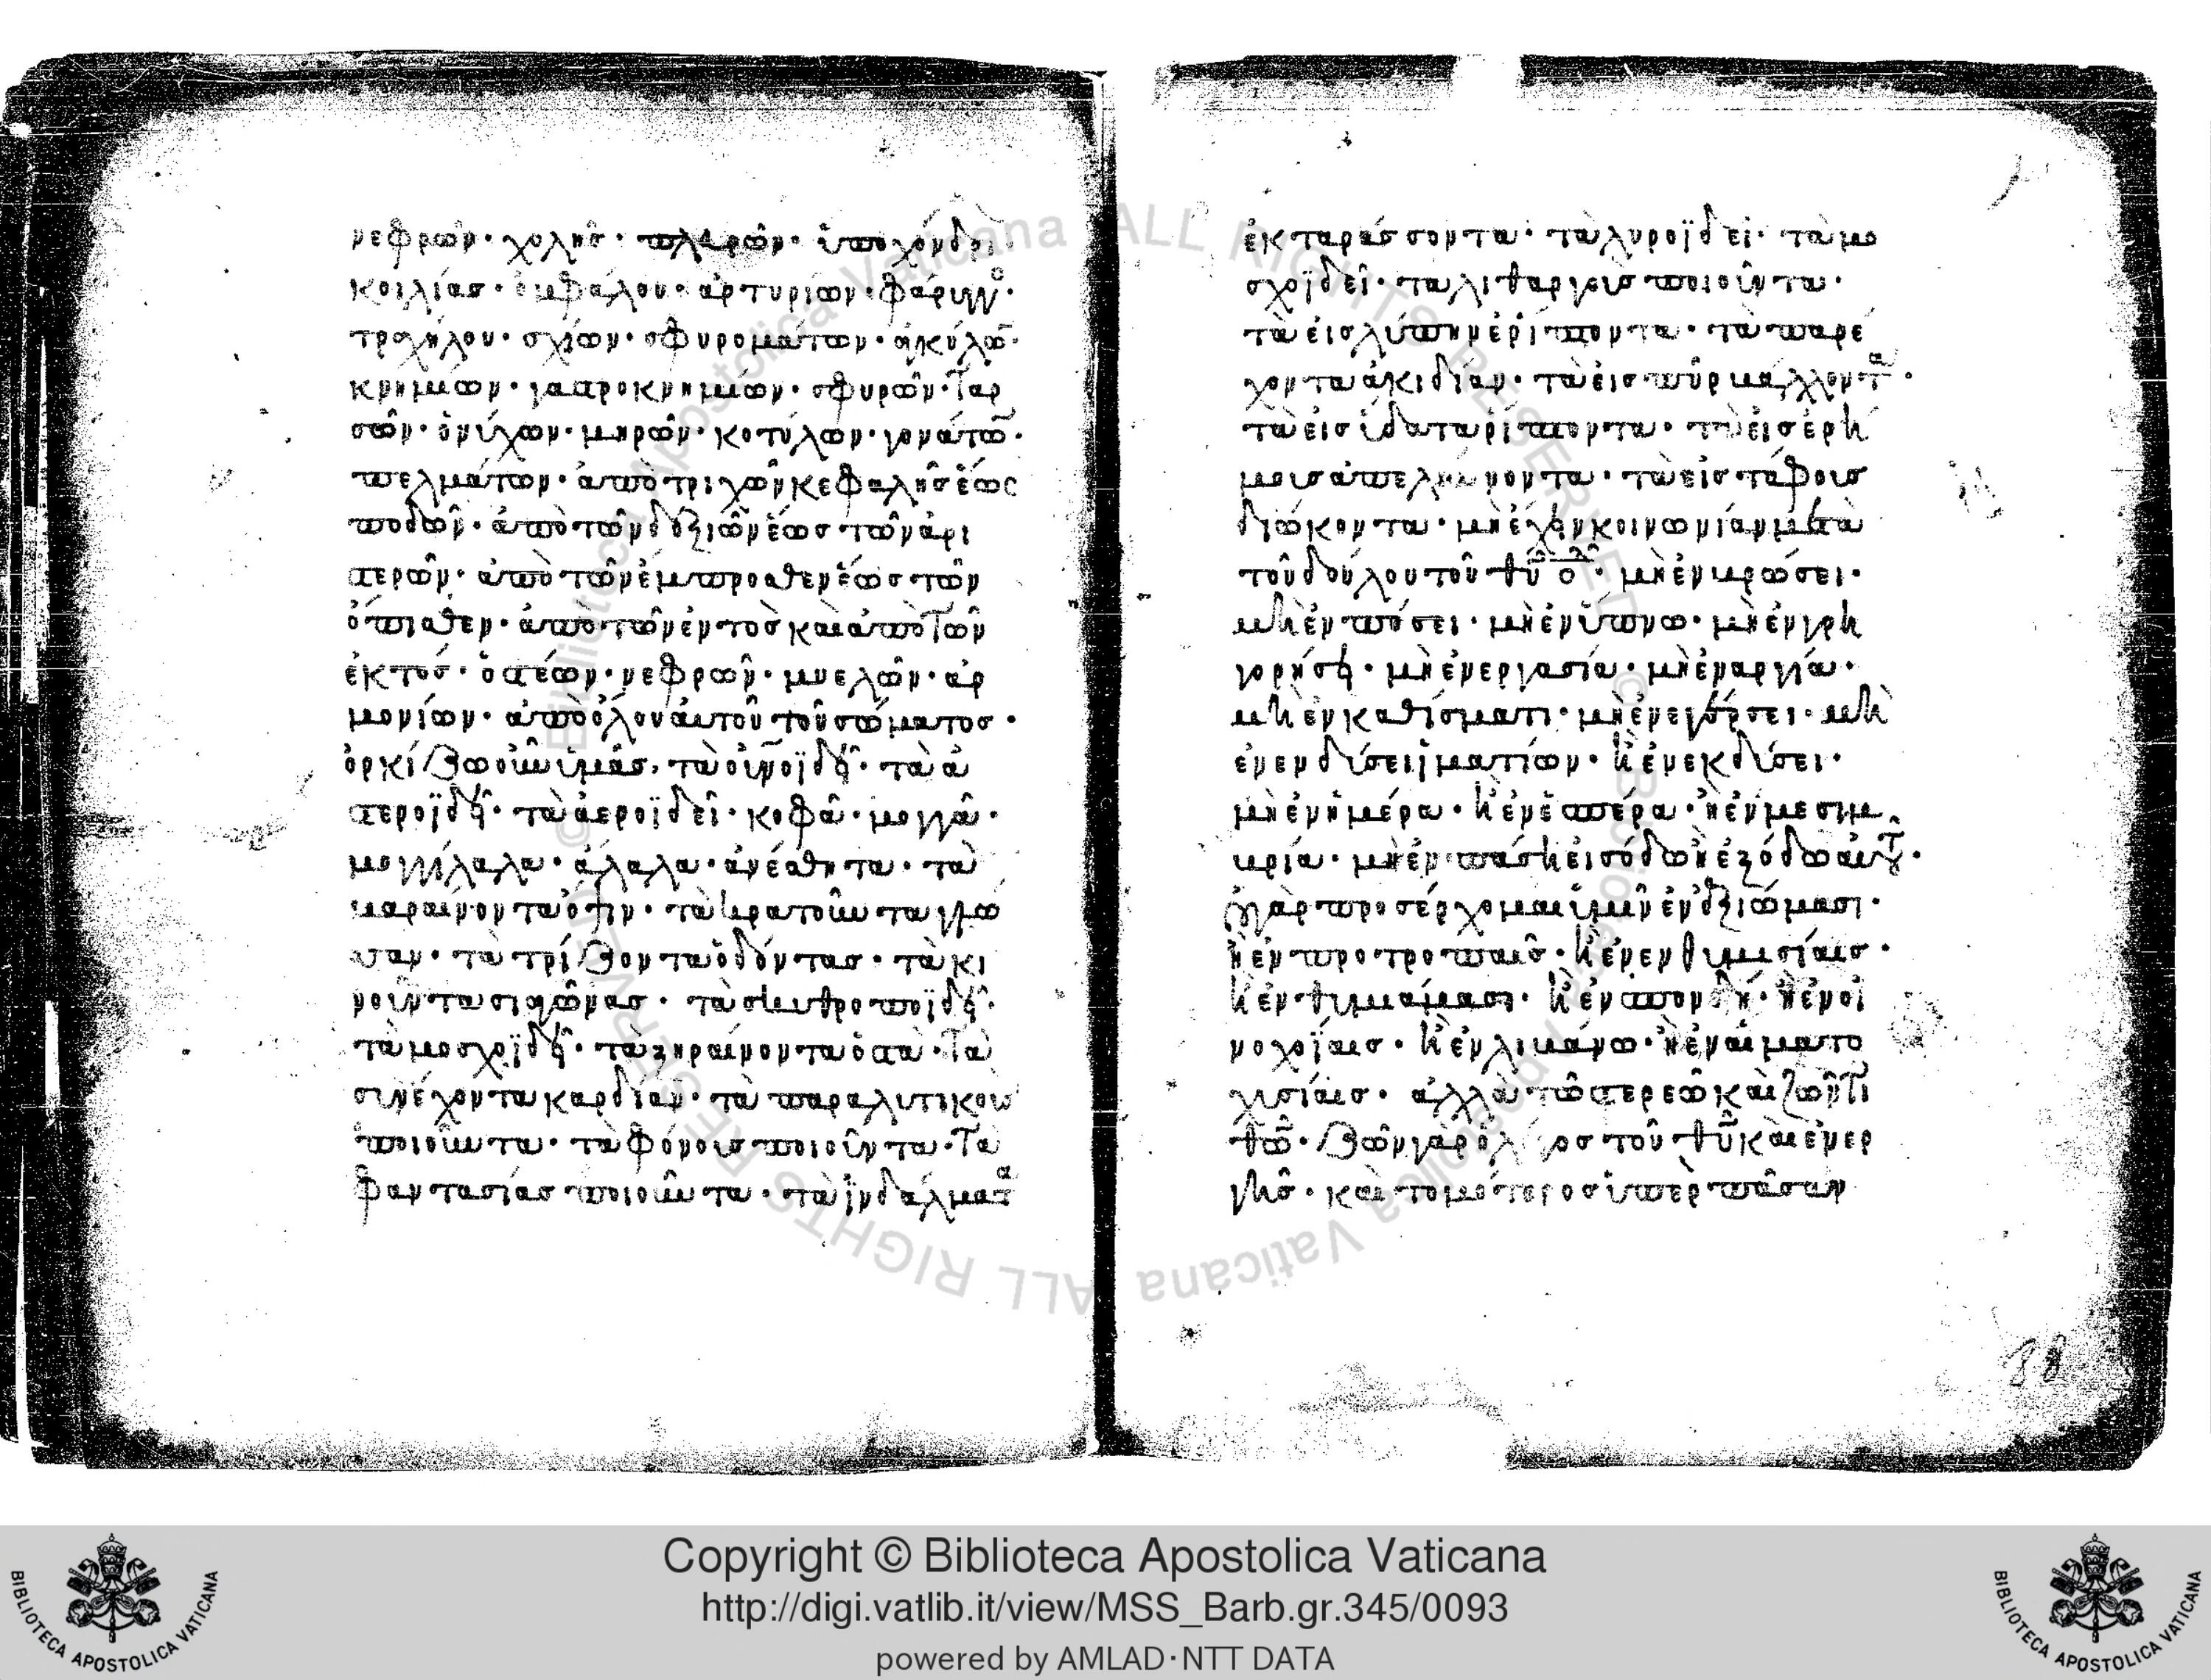 νεφρῶν· χολῆς· πλερῶν· ὑποχόνδρι
κοιλίας· ὀμφάλου· ἀρτυριῶν· φάριγγο·
τραχήλου· σχίων· σφυρομάτων· ἀγκύλω̅·
κνημιῶν· γαστροκνημιῶν· σφυρῶν· ταρ
σῶν· ὀνίχων· μηρῶν· κοτύλων· γονάτω̅·
πελμάτων· ἀπὸ τριχῶν κεφαλῆς ἕως
ποδῶν· ἀπὸ τῶν δεξιῶν ἕως τῶν ἀρι
στερῶν· ἀπὸ τῶν ἔμπροσθεν ἕως τῶν
ὄπισθεν· ἀπὸ τῶν ἐντὸς καὶ ἀπὸ τῶν
ἐκτός· ὀστέων· νεφρῶν· μυελῶν· ἁρ
μονίων· ἀπὸ ὅλου αὐτοῦ τοῦ σώματος·
ὁρκίζω οὖν ὑμᾶς, τὰ οἰνοϊδῆ· τὰ ἀ
στεροϊδῆ· τὰ ἀεροϊδεῖ· κοφὰ· μογγὰ·
μογγίλαλα· ἄλαλα· ἀνέσθητα· τὰ
μαραίνοντα ὄψιν· τὰ κρατοῦντα γλῶ
σσαν· τὰ τρίζοντα ὀδόντας· τὰ κι
νοῦντα σιαγῶνας· τὰ σκυθροποϊδῆ·
τὰ μοσχοϊδῆ· τὰ ξηραίνοντα ὀστὰ· τὰ
συνέχοντα καρδίαν· τὰ παραλυτικοὺς
ποιοῦντα· τὰ φόνους ποιοῦντα· τὰ
φαντασίας ποιοῦντα· τὰ ἰνδάλματα
ἐκταράσσοντα· τὰ λυροϊδεῖ· τὰ μο
σχοϊδεῖ· τα λιθαργοὺς ποιοῦντα·
τὰ εἰς λύπην ἐρίπτοντα· τὰ παρέ
χοντα ἀκιδίαν· τὰ εἰς πῦρ βάλλοντα·
τὰ εἰς ὕδατα ῥίπτοντα· τὰ εἰς ἐρή
μοις ἀπελαύνοντα· τὰ εἰς τάφοις
διώκοντα· μὴ ἔχειν κοινωνίαν μετὰ
τοῦ δούλου τοῦ θυ̅ ὁ δ̅· μὴ ἐν βρώσει·
μὴ ἐν πόσει· μὴ ἐν ὕπνω· μὴ ἐν γρη
γορήσει· μὴ ἐν ἐργασία· μὴ ἐν ἀργία·
μὴ ἐν καθίσματι· μὴ ἐν ἐγέρσει· μὴ
ἐν ἐνδύσει ἱματίων· ἢ ἐν ἐκδύσει·
μὴ ἐν ἡμέρα· ἢ ἐν ἑσπέρα· ἢ ἐν μεσημ
βρία· μὴ ἐν πάση εἰσόδω ἢ ἐξόδω αὐτοῦ·
οὐ γὰρ προσέρχομαι ὑμῖν ἐν ἀξιώμασι·
ἢ ἐν προτροπαῖς· ἢ ἐν ἐνθυμισίαις·
ἢ ἐν θυμιάμασι· ἢ ἐν σπονδῆ· ἢ ἐν οἰ
νοχοΐαις· ἢ ἐν λιβάνω· ἢ ἐν αἱματο
χυσίαις· ἀλλὰ τῶ στερεῶ καὶ ζῶντι
θω̅· ζῶν γὰρ ὁ λόγος τοῦ θυ̅ καὶ ἐνερ
γὴς· καὶ τομότερος ὑπὲρ πᾶσαν
88
Copyright © Biblioteca Apostolica Vaticana
http://digi.vatlib.it/view/MSS_Barb.gr.345/0093
powered by AMLAD·NTT DATA
BIBLIOTECA APOSTOLICA VATICANA
BIBLIOTECA APOSTOLICA VATICANA
© Biblioteca Apostolica Vaticana ALL RIGHTS RESERVED
© Biblioteca Apostolica Vaticana ALL RIGHTS RESERVED